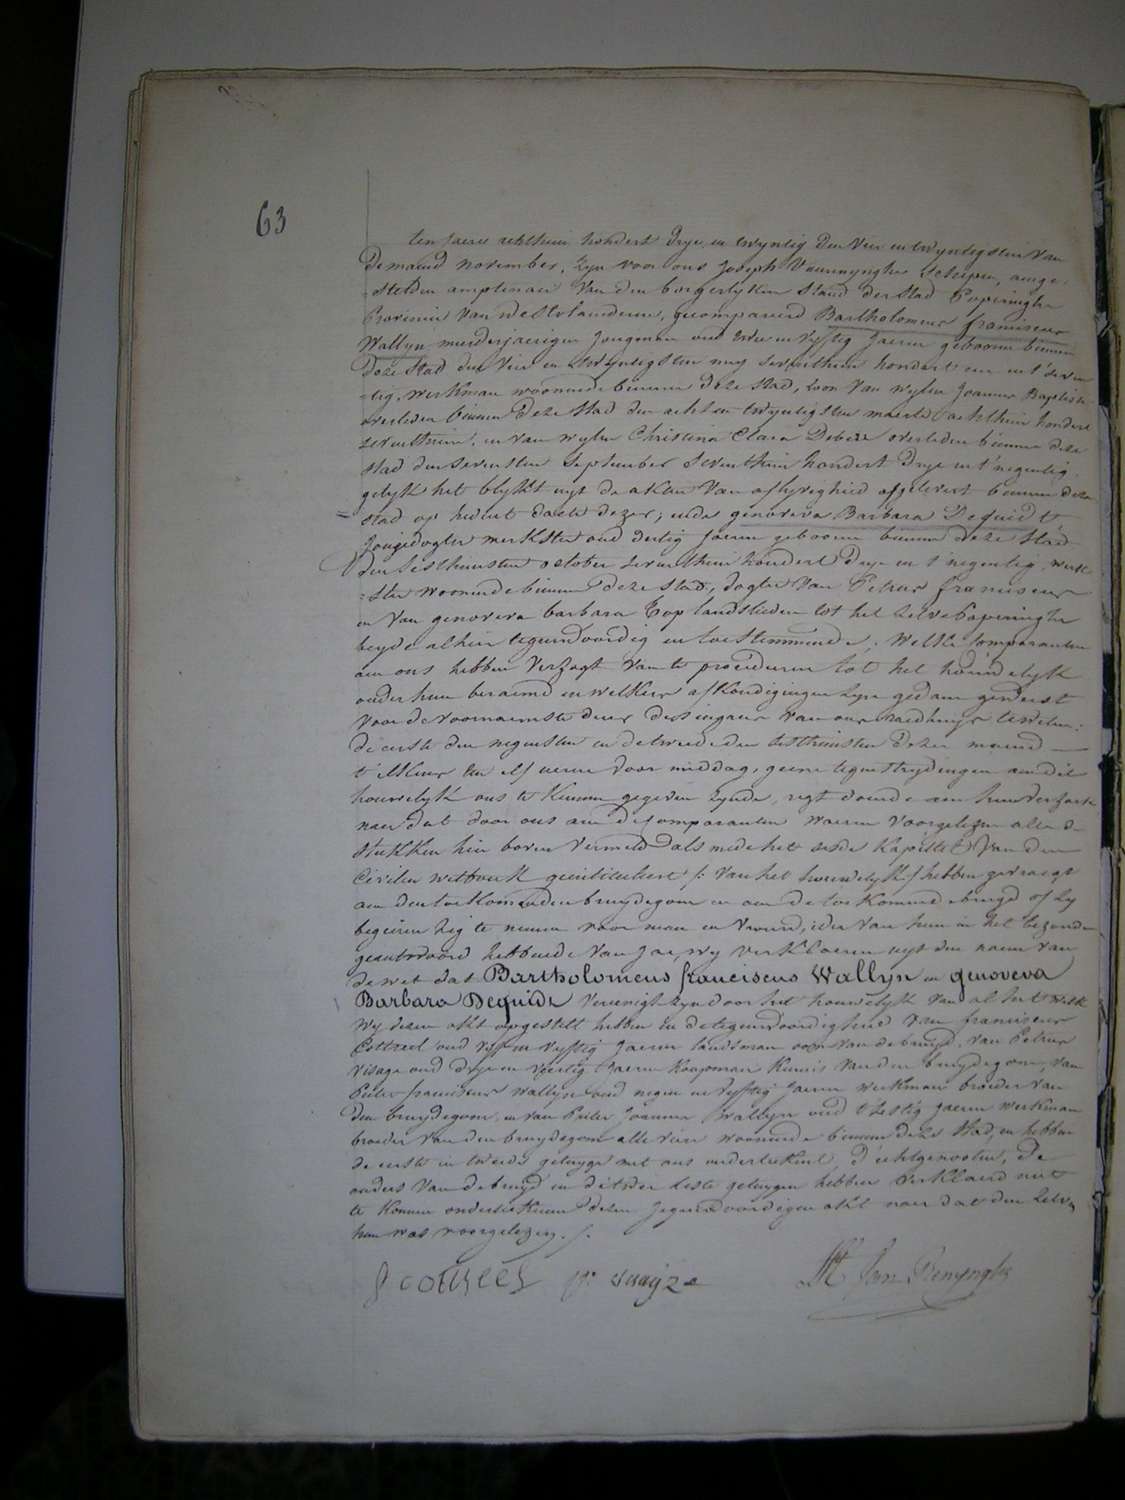 63
ten jaere achthien hondert drye en twyntig den vier en twyntigsten van
de maend november, zyn voor ons Joseph Vanrenynghe Schepen, ange-
-stelden amptenaer van den borgerlyken stand der stad Poperinghe
Provincie van westvlaenderen, gecompareerd Bartholomeus franciscus
Wallyn meerderjaerigen jongman oud twee en vyftig jaeren geboren binnen
deze stad den vier en twyntigsten mey seventhien hondert een en t'seven
-tig, werkman woonende binnen deze stad, zoon van wylen Joannes Baptiste
overleden binnen deze stad den acht en twyntigsten maerte achthien hondert
seventhien, en van wylen Christina Clara Debeze overleden binnen deze
stad den sevensten september seventhien hondert drye en t'negentig
gelyk het blykt uyt de akten van aflyvigheid afgelevert binnen deze
stad op heden daete dezer; ende genoveva Barbara Dequidt
Jongedogter werkster oud dertig jaeren geboren binnen deze stad
den sesthiensten october seventhien hondert drye en t'negentig, werk-
-ster woonende binnen deze stad, dogter van Petrus franciscus
en van genoveva barbara Top landslieden tot het zelve Poperinghe
beyde alhier tegenwoordig en toestemmende. Welke comparanten
aen ons hebben verzogt van te procederen tot het houwelyk
onder hun beraemd en welkers afkondigingen zyn gedaen geweest
voor de voornaemste deur des ingans van ons raedhuys te weten:
de eerste den negensten en de tweede den sesthiensten dezer maend
t'elkens ten elf ueren voor middag, geene tegenstrydingen aen dit
houwelyk ons te kennen gegeven zynde, regt doende aen hun verzoek
naer dat door ons aen de comparanten waeren voorgelezen alle de
stukken hier boven vermeld als mede het sesde kapittel van den
Civilen wetboek geintituleert /: van het houwelyk :/ hebben gevraegt
aen den toekomenden bruydegom en aen de toekomende bruyd of zy
begeiren zig te nemen voor man en vrouw, ider van hun in het bezonder
geantwoord hebbende van jae, wy verklaeren uyt den naem van
de wet dat Bartholomeus franciscus Wallyn en genoveva
Barbara Dequidt vereenigt zyn door het houwelyk van al het welk
wy dezen akt opgestelt hebben in de tegenwoordigheid van franciscus
Cottreel oud vyf en vyftig jaeren landsman oom van de bruyd, van Petrus
Visage oud drye en veertig jaeren koopman kennis van den bruydegom, van
Pieter franciscus Wallyn oud negen en vyftig jaeren werkman broeder van
den bruydegom, en van Pieter Joannes Wallyn oud t'zestig jaeren werkman
broeder van den bruydegom alle vier woonende binnen deze stad, en hebben
de eerste en tweede getuyge met ons onderteekent, d'echtgenooten, de
ouders van de bruyd en de twee leste getuygen hebben verklaerd niet
te konnen onderteekenen dezen jegenwoordigen akt naer dat den zelven
hun was voorgelezen. /.
Jos. Van Renynghe